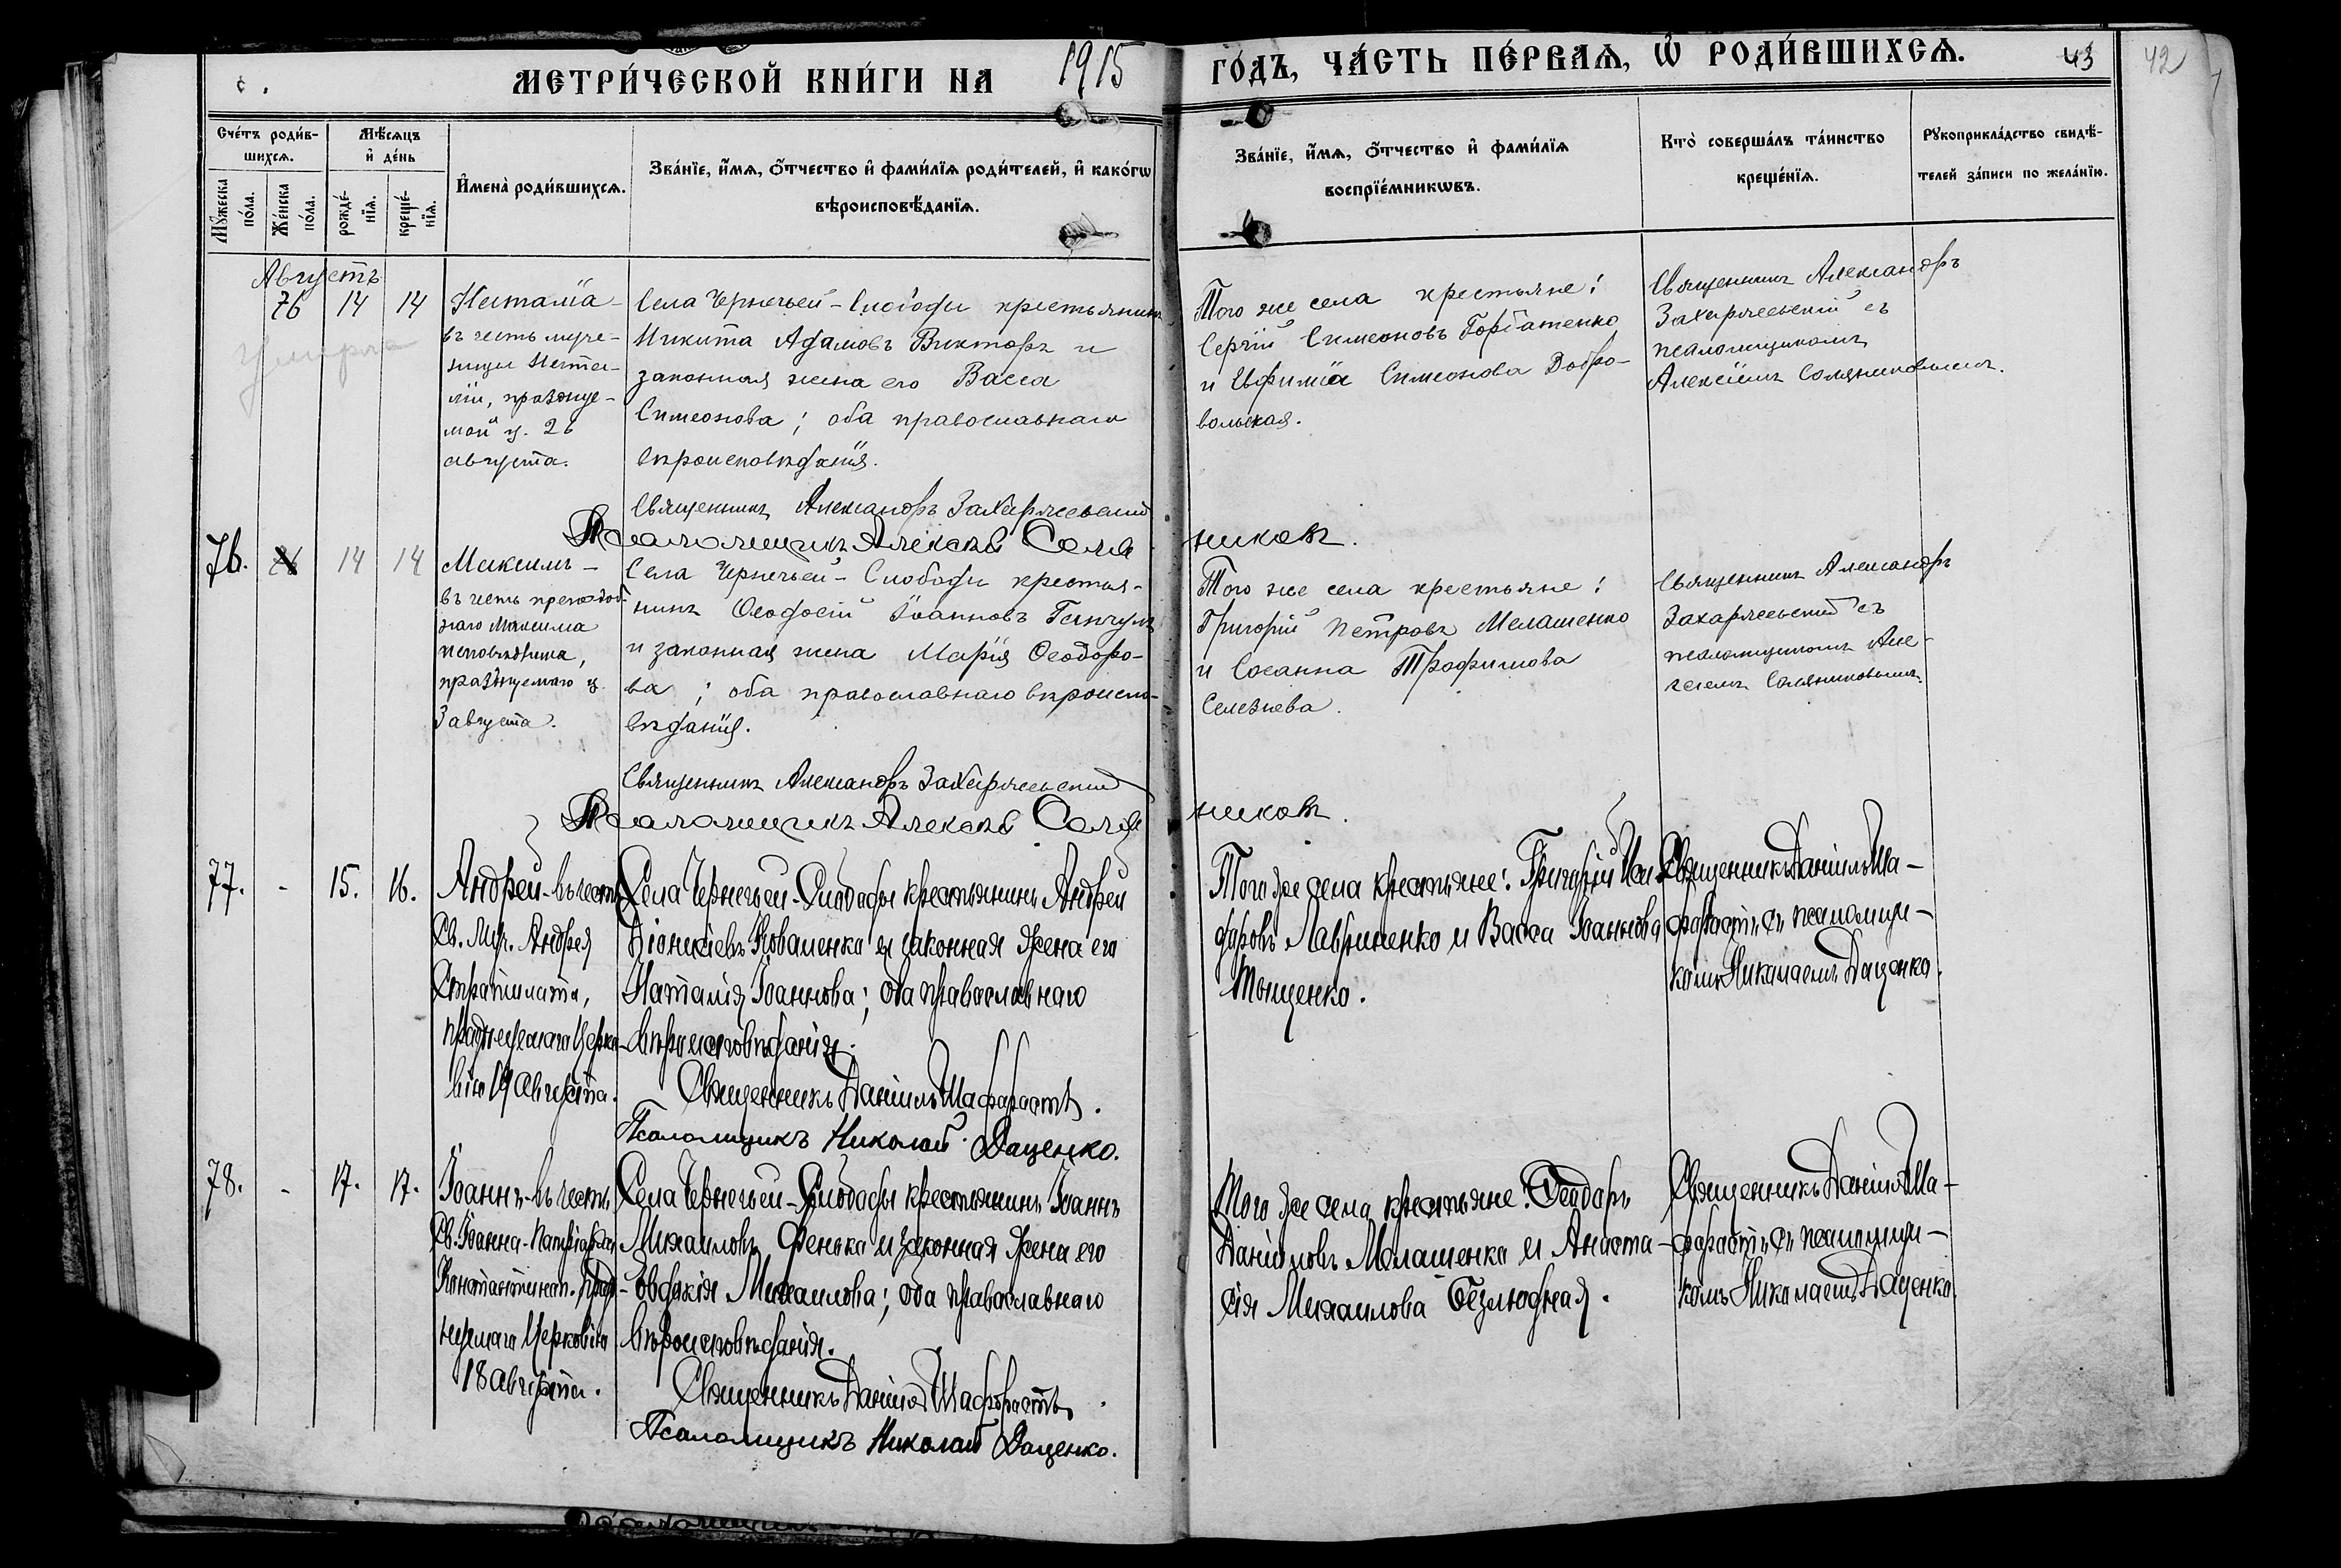 МЕТРИ́ЧЕСКОЙ КНИ́ГИ НА 1915 ГО́ДЪ, ЧА́СТЬ ПЕ́РВАЯ, Ѡ РОДИ́ВШИХСЯ. 43 42
Сче́тъ роди́в-
шихся.
Мѣ́сяцъ
и де́нь
Мꙋ́жеска
по́ла.
Же́нска
по́ла.
рожде́-
нїя.
креще́-
нїя.
Имена̀ роди́вшихся.
Зва́нїе, и́мя, о́тчество и фами́лїя роди́телей, и како́гѡ
вѣроисповѣ́данїя.
Зва́нїе, и́мя, о́тчество и фами́лїя
воспрїе́мникѡвъ.
Кто̀ соверша́лъ та́инство
креще́нїя.
Рꙋкоприкла́дство свидѣ́-
телей за́писи по жела́нїю.
Августъ
76 14 14
Умерла
Наталія
въ честь муче-
ницы Ната-
ліи, праздуе-
мой ц. 26
августа.
Села Чернечьей-Слободы крестьянинъ
Никита Адамовъ Викторъ и
законная жена его Васса
Симеонова; оба православнаго
вѣроисповѣданія.
Священникъ Александръ Захаржевскій
Псаломщикъ Алексѣй Соляниковъ.
Того же села крестьяне:
Сергій Симеоновъ Горбатенко
и Евфимія Симеонова Добро-
вольская.
Священникъ Александръ
Захаржевскій съ
псаломщикомъ
Алексіемъ Соляниковымъ.
76. 14 14
Максимъ -
въ честь преподоб-
наго Максима
исповѣдника,
празднуемаго ц.
3 августа.
Села Чернечьей-Слободы крестья-
нинъ Ѳеодосій Іоанновъ
и законная жена Марія Ѳеодоро-
ва; оба православнаго вѣроиспо-
вѣданія.
Священникъ Александръ Захаржевскій
Псаломщикъ Алексѣй Соляниковъ.
Того же села крестьяне:
Григорій Петровъ Мелашенко
и Сосанна Трофимова
Селезнева.
Священникъ Александръ
Захаржевскій съ
псаломщикомъ Але-
ксіемъ Соляниковымъ.
77. - 15. 16.
Андрей - въ честь
Св. Муч. Андрея
Стратилата,
празднуемаго Церко-
вію 19 Августа.
Села Чернечьей-Слободы крестьянинъ Андрей
Діонисіевъ Коваленко и законная жена его
Наталія Іоаннова; оба православнаго
вѣроисповѣданія.
Священникъ Даніилъ Шафрастъ.
Псаломщикъ Николай Даценко.
Того же села крестьяне: Григорій Иси-
доровъ Лавриненко и Васса Іоаннова
Тощенко.
Священникъ Даніилъ Ша-
фрастъ съ псаломщи-
комъ Николаемъ Даценко.
78. - 17. 17.
Іоаннъ - въ честь
Св. Іоанна - Патріарха
Константиноп. празд-
нуемаго Церковію
18 Августа.
Села Чернечьей-Слободы крестьянинъ Іоаннъ
Михаиловъ Фенька и законная жена его
Евдокія Михаилова; оба православнаго
вѣроисповѣданія.
Священникъ Даніилъ Шафрастъ.
Псаломщикъ Николай Даценко.
Того же села крестьяне: Ѳеодоръ
Даніиловъ Мелашенко и Анаста-
сія Михаилова Безлюдная.
Священникъ Даніилъ Ша-
фрастъ съ псаломщи-
комъ Николаемъ Даценко.